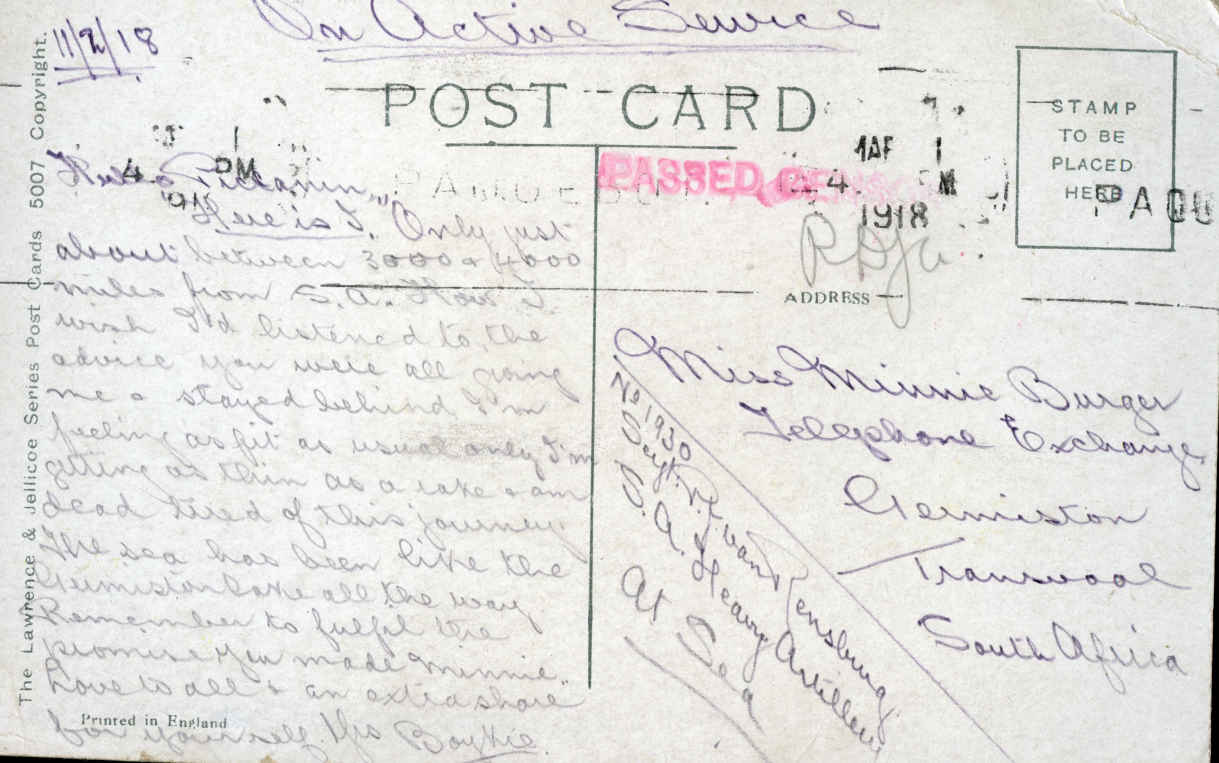 On Active Service
11/2/18
POST CARD
STAMP
TO BE
PLACED
HERE
PASSED
4 PM
MAR 1
4 PM
1918
PAQU
The Lawrence & Jellicoe Series Post Cards 5007 Copyright.
"Here is I." Only just
about between 3000 & 4000
miles from S.A. How I
wish I'd listened to the
advice you were all giving
me & stayed behind. I'm
feeling as fit as usual only I'm
getting as thin as a rake & am
dead tired of this journey.
The sea has been like the
Germiston Lake all the way.
Remember to fulfil the
promise you made Minnie.
Love to all & an extra share
for yourself. Boykie.
Printed in England
ADDRESS
Miss Minnie Burger
Telephone Exchange
Germiston
Transvaal
South Africa
No 1930
Sergt. P. J. van Rensburg
S.A. Heavy Artillery
At Sea